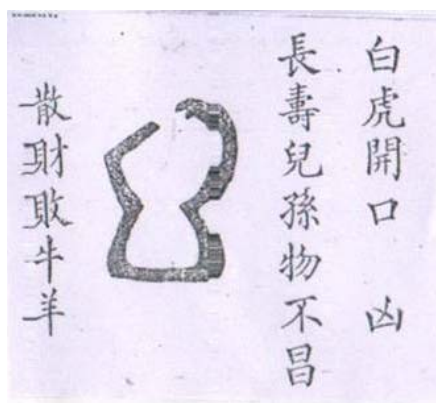 白虎開口 凶
長壽兒孫物不昌
散財敗牛羊